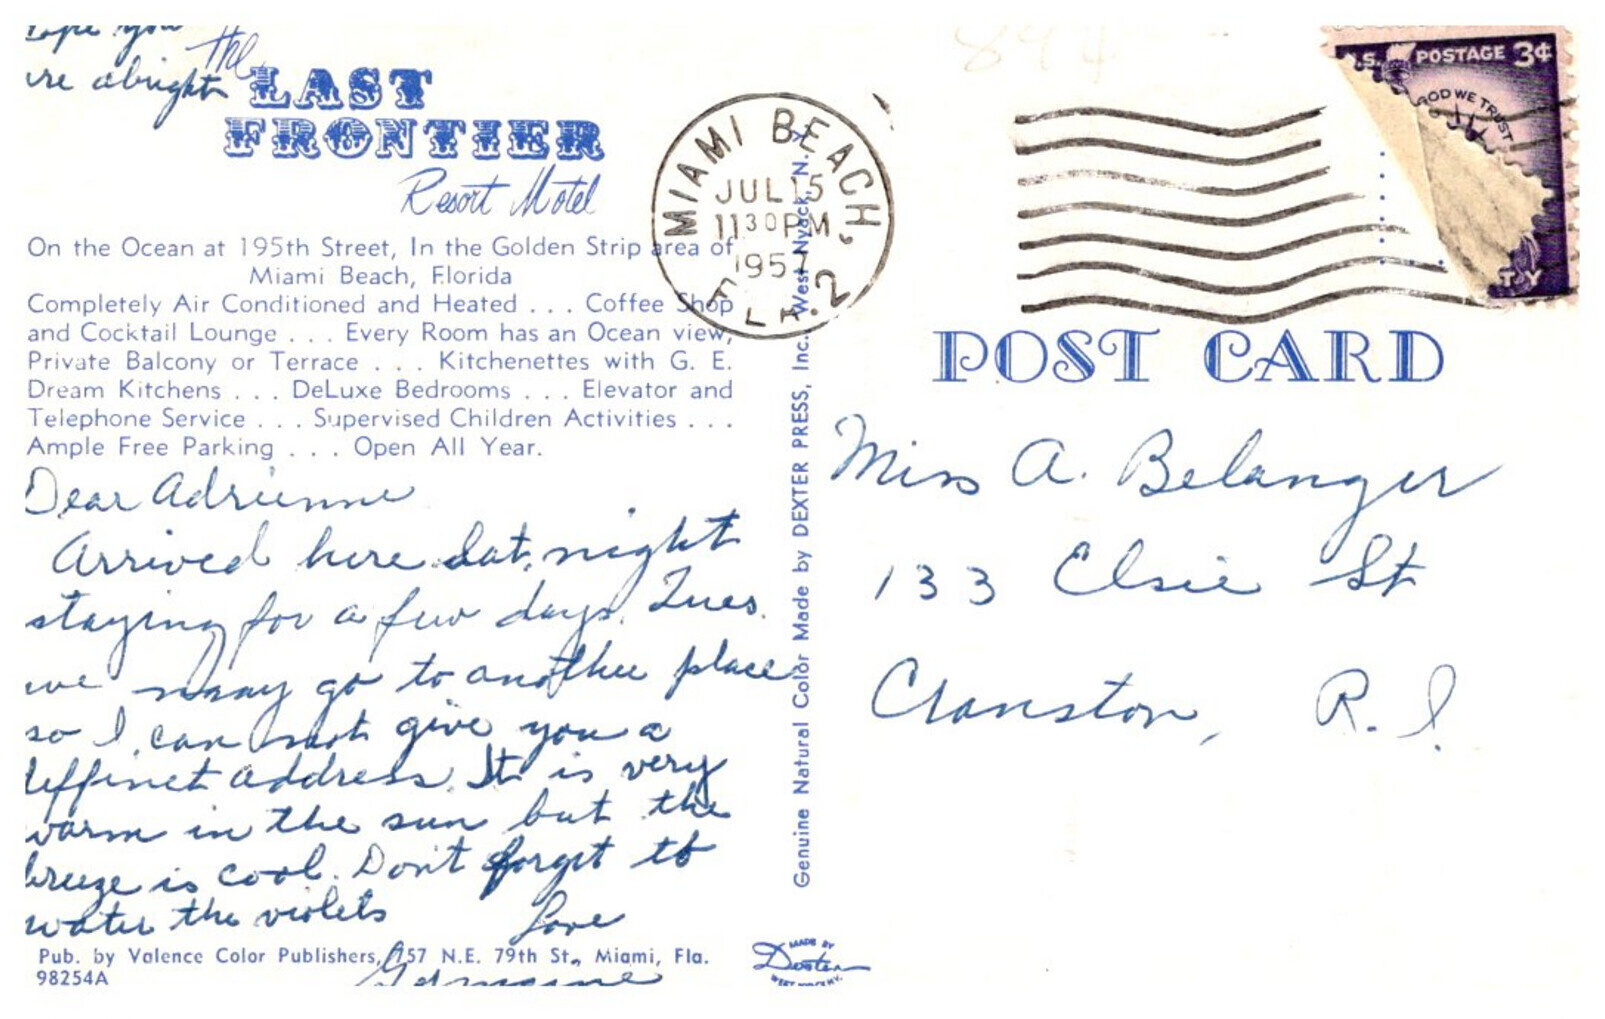 hope you
are alright
The
LAST
FRONTIER
Resort Motel
On the Ocean at 195th Street, In the Golden Strip area of
Miami Beach, Florida
Completely Air Conditioned and Heated . . . Coffee Shop
and Cocktail Lounge . . . Every Room has an Ocean view,
Private Balcony or Terrace . . . Kitchenettes with G. E.
Dream Kitchens . . . DeLuxe Bedrooms . . . Elevator and
Telephone Service . . . Supervised Children Activities . . .
Ample Free Parking . . . Open All Year.
Dear Adrienne
Arrived here Sat. night
staying for a few days. Tues.
we maay go to another place
so I can not give you a
deffinet address. It is very
warm in the sun but the
breeze is cool. Don't forget to
water the violets
Love
Germaine
Pub. by Valence Color Publishers, 757 N.E. 79th St., Miami, Fla.
98254A
MADE BY
Dexter
WEST NYACK N.Y.
Genuine Natural Color Made by DEXTER PRESS, Inc. West Nyack, N.Y.
MIAMI BEACH,
JUL 15
11 30 PM
1957
FLA. 2
894
U.S. POSTAGE 3¢
GOD WE TRUST
TY
POST CARD
Miss A. Belanger
133 Elsie St
Cranston, R. I.